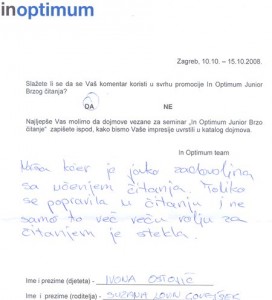 inoptimum
Zagreb, 10.10. – 15.10.2008.
Slažete li se da se Vaš komentar koristi u svrhu promocije In Optimum Junior
Brzog čitanja?
DA NE
Najljepše Vas molimo da dojmove vezane za seminar „In Optimum Junior Brzo
čitanje" zapišete ispod, kako bismo Vaše impresije uvrstili u katalog dojmova.
In Optimum team
Naša kćer je jako zadovoljna
sa učenjem čitanja. Toliko
se popravila u čitanju i ne
samo to već veću volju za
čitanjem je stekla.
Ime i prezime (djeteta) - IVONA OSTOJIĆ
Ime i prezime (roditelja) - SUZANA